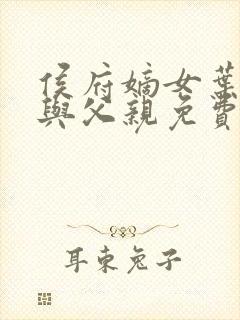 侯府嫡女葉
與父親免費
耳東兔子